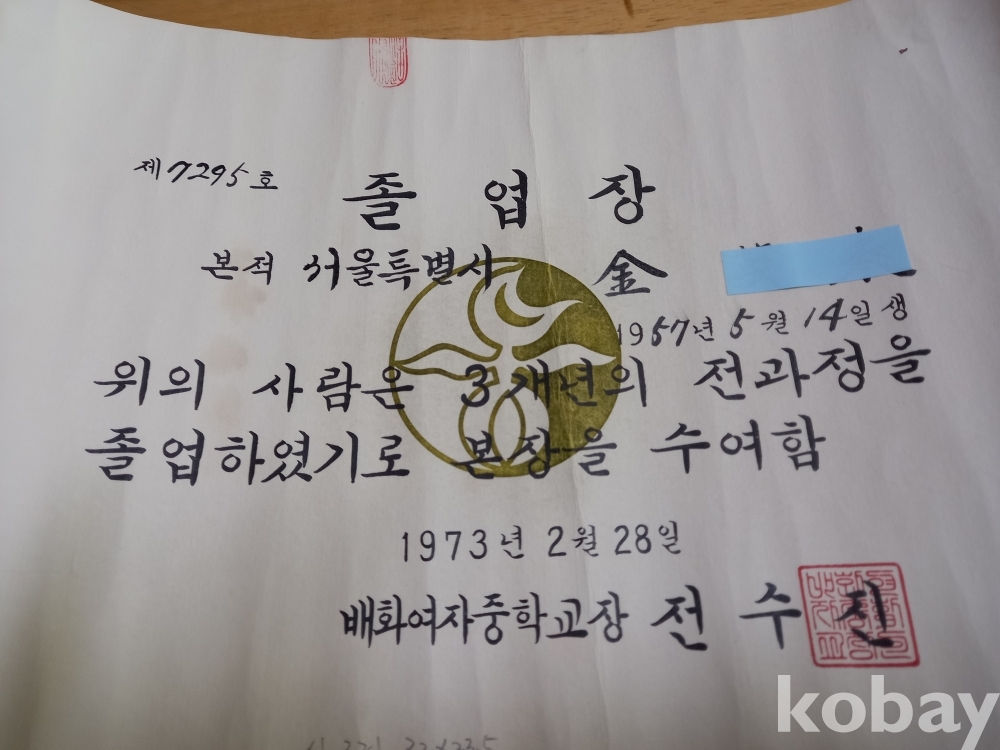 제7295호
졸업장
본적 서울특별시 金
1957년 5월 14일생
위의 사람은 3개년의 전과정을
졸업하였기로 본장을 수여함
1973년 2월 28일
배화여자중학교장 전수진
kobay